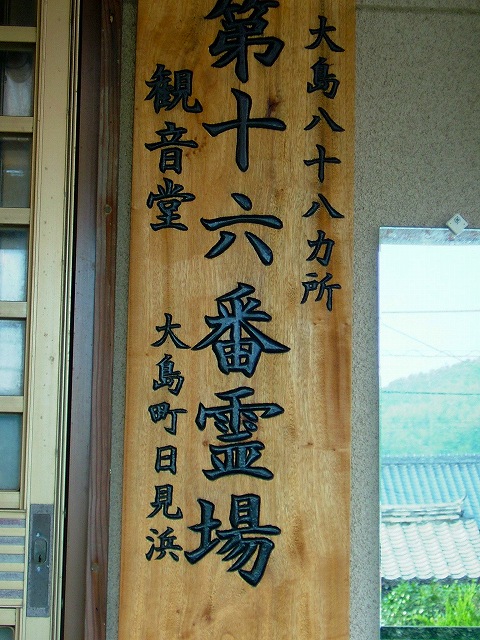 大島八十八カ所
第十六番霊場
観音堂
大島町日見浜